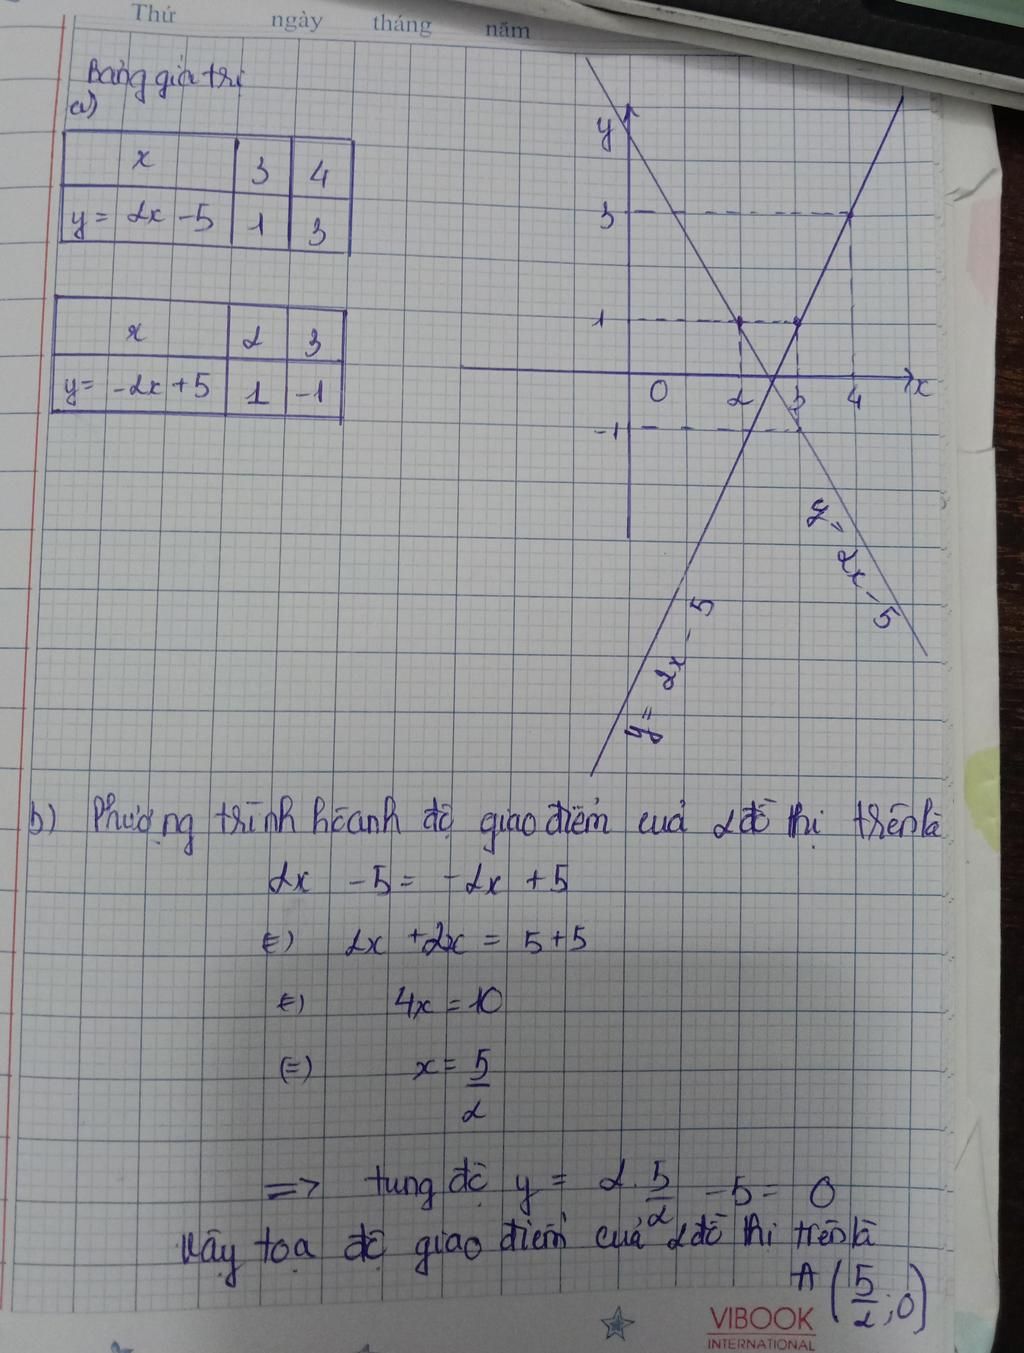 Thứ ngày tháng năm
Bảng giá trị
a)
x 3 4
y = 2x - 5 1 3
x 2 3
y = -2x + 5 1 -1
y
3
1
0 2 3 4 x
-1
y = 2x - 5
y = 2x - 5
b) Phương trình hoành độ giao điểm của 2 đồ thị trên là
2x - 5 = -2x + 5
(=) 2x + 2x = 5 + 5
(=) 4x = 10
(=) x = 5/2
=> tung độ y = 2.5/2 - 5 = 0
Vậy toạ độ giao điểm của 2 đồ thị trên là
A (5/2; 0)
VIBOOK
INTERNATIONAL